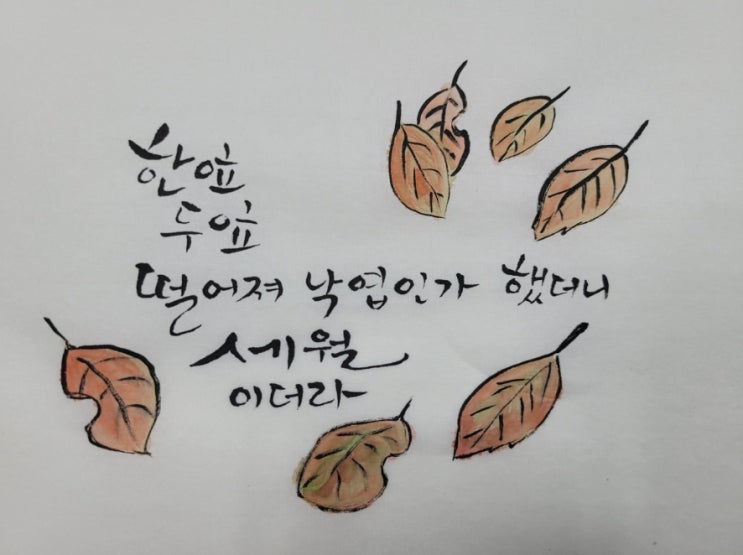 한잎
두잎
떨어져 낙엽인가 했더니
세월
이더라